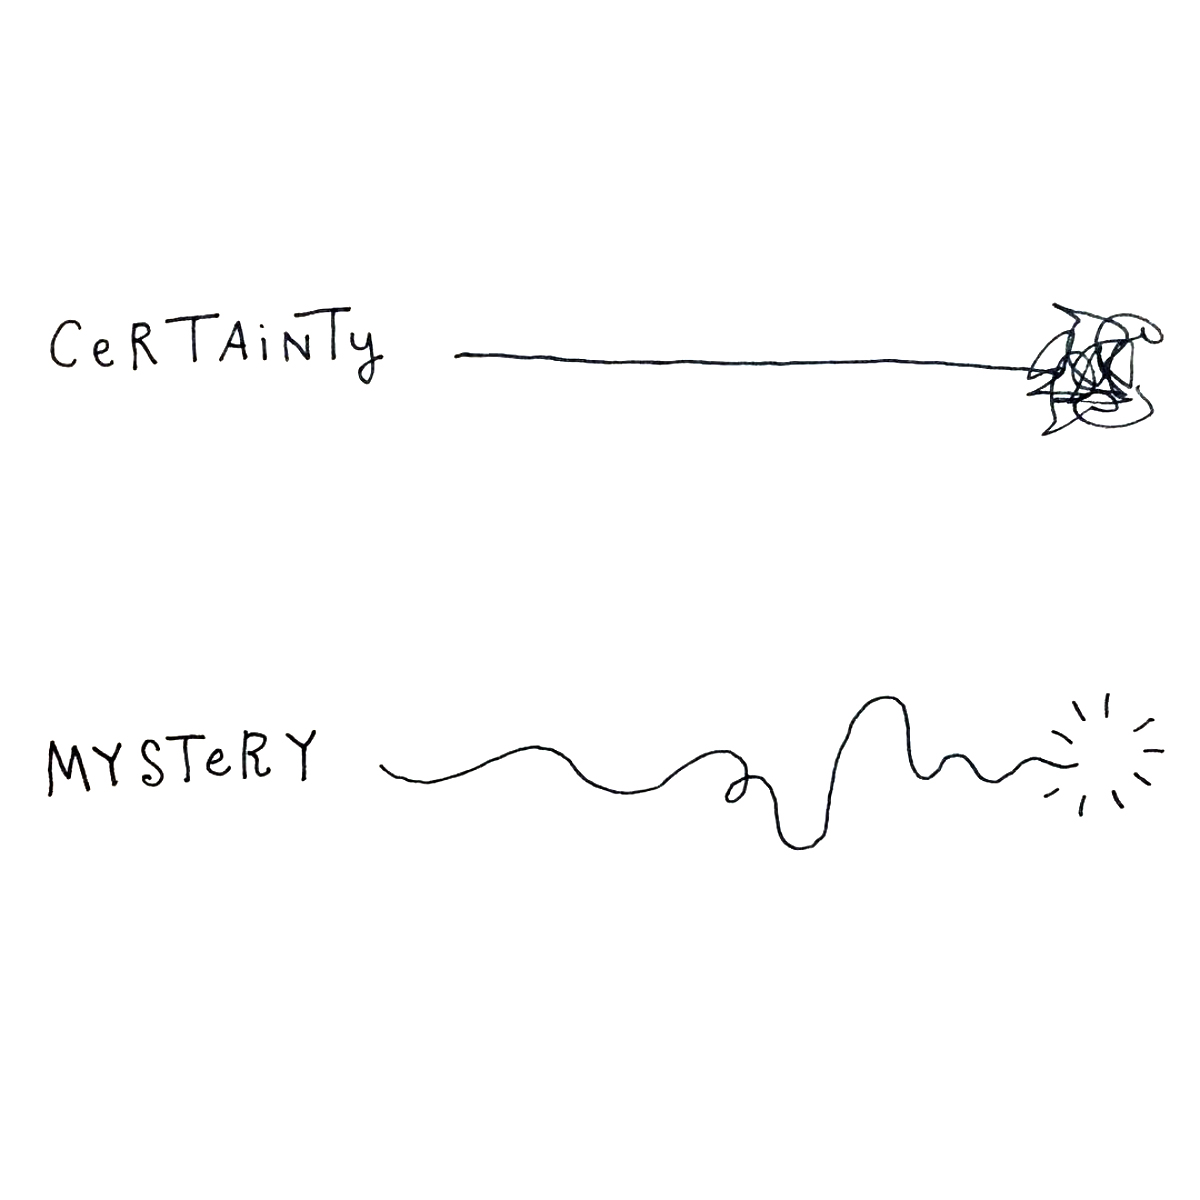 CeRTAiNTy
MYSTeRY